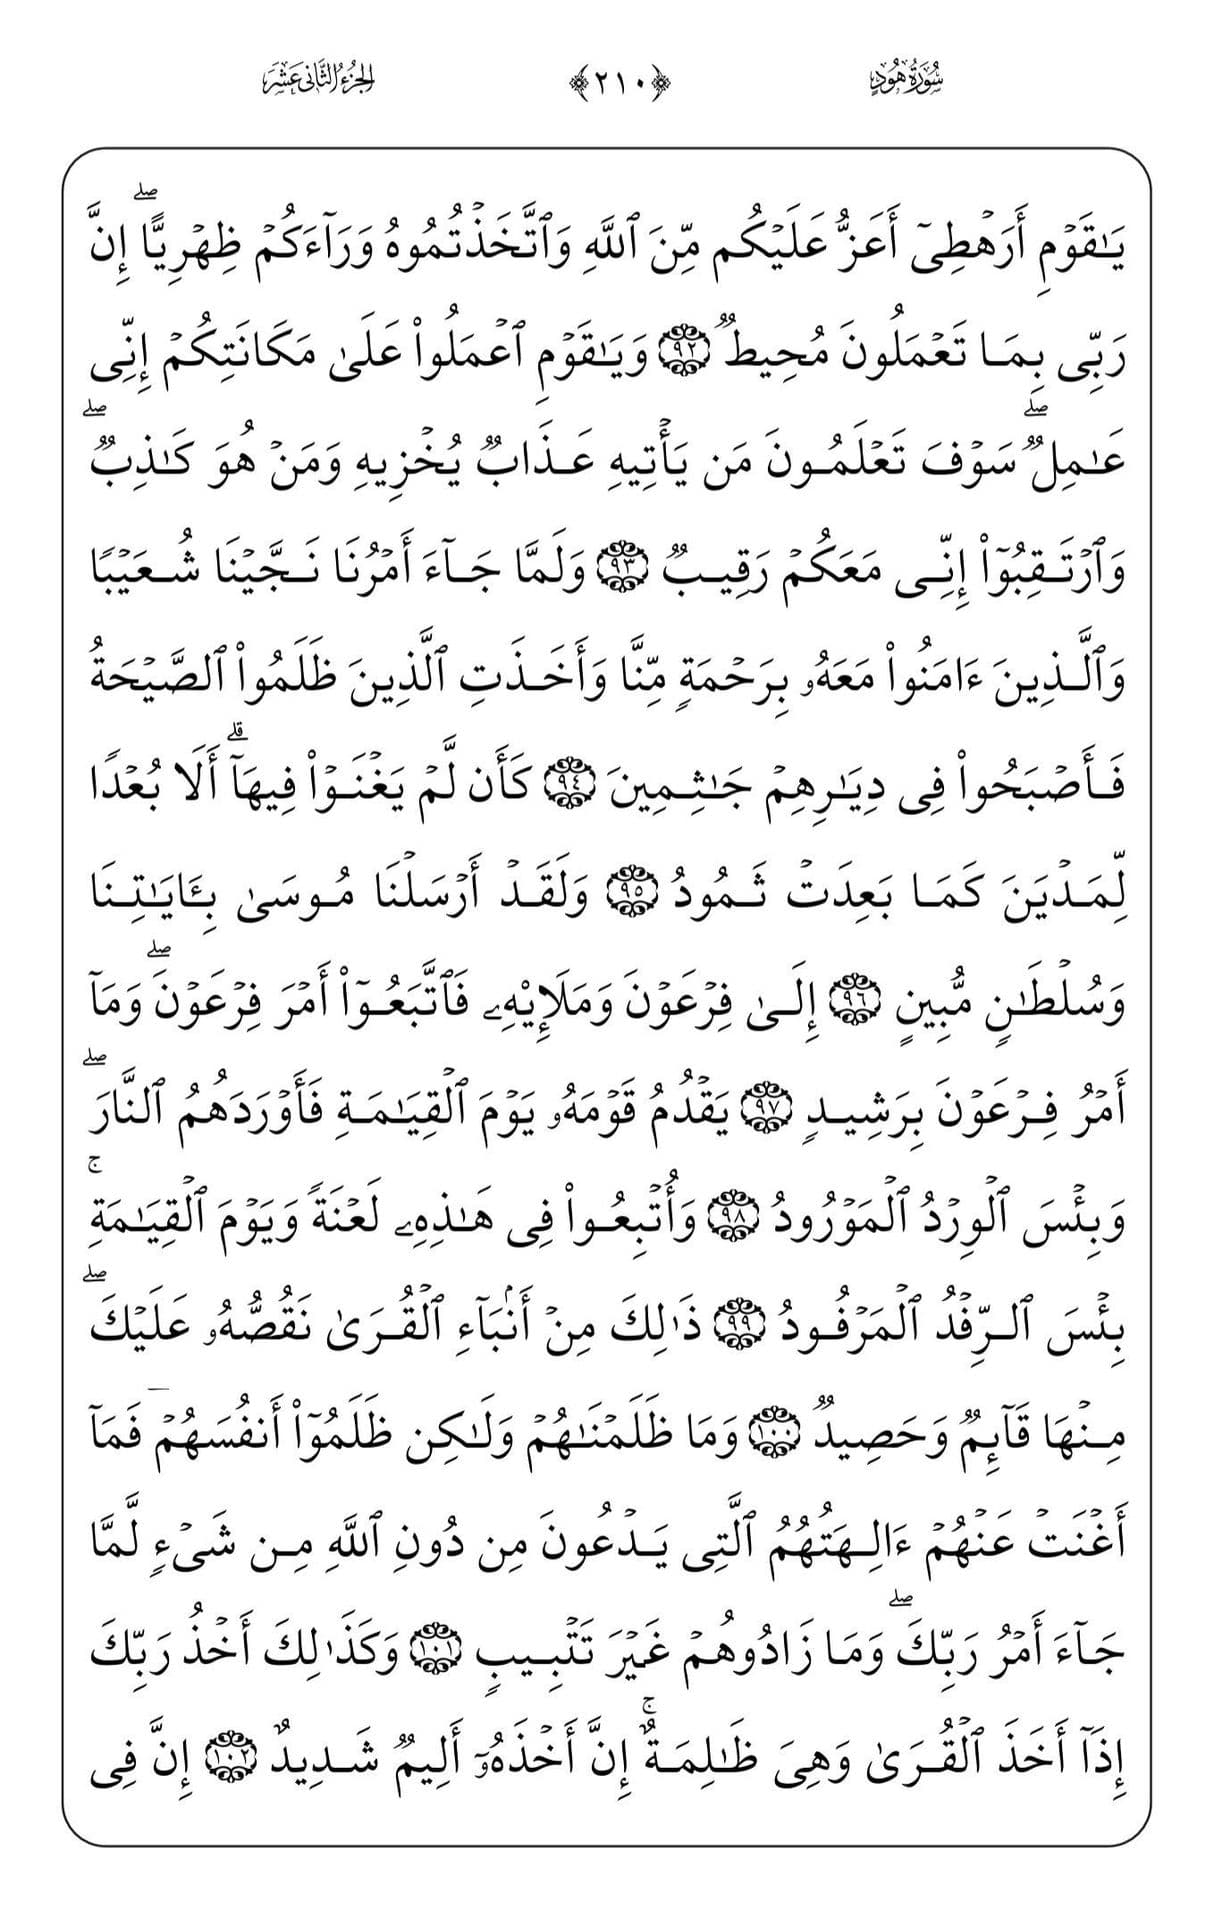 سُورَةُ هُودٍ ﴿٢١٠﴾ الجُزْءُ الثَّانِي عَشَرَ
يَٰقَوْمِ أَرَهْطِىٓ أَعَزُّ عَلَيْكُم مِّنَ ٱللَّهِ وَٱتَّخَذْتُمُوهُ وَرَآءَكُمْ ظِهْرِيًّا ۖ إِنَّ
رَبِّى بِمَا تَعْمَلُونَ مُحِيطٌ ٩٢ وَيَٰقَوْمِ ٱعْمَلُوا۟ عَلَىٰ مَكَانَتِكُمْ إِنِّى
عَٰمِلٌ ۖ سَوْفَ تَعْلَمُونَ مَن يَأْتِيهِ عَذَابٌ يُخْزِيهِ وَمَنْ هُوَ كَٰذِبٌ ۖ
وَٱرْتَقِبُوٓا۟ إِنِّى مَعَكُمْ رَقِيبٌ ٩٣ وَلَمَّا جَآءَ أَمْرُنَا نَجَّيْنَا شُعَيْبًا
وَٱلَّذِينَ ءَامَنُوا۟ مَعَهُۥ بِرَحْمَةٍ مِّنَّا وَأَخَذَتِ ٱلَّذِينَ ظَلَمُوا۟ ٱلصَّيْحَةُ
فَأَصْبَحُوا۟ فِى دِيَٰرِهِمْ جَٰثِمِينَ ٩٤ كَأَن لَّمْ يَغْنَوْا۟ فِيهَآ ۗ أَلَا بُعْدًا
لِّمَدْيَنَ كَمَا بَعِدَتْ ثَمُودُ ٩٥ وَلَقَدْ أَرْسَلْنَا مُوسَىٰ بِـَٔايَٰتِنَا
وَسُلْطَٰنٍ مُّبِينٍ ٩٦ إِلَىٰ فِرْعَوْنَ وَمَلَإِي۟هِۦ فَٱتَّبَعُوٓا۟ أَمْرَ فِرْعَوْنَ ۖ وَمَآ
أَمْرُ فِرْعَوْنَ بِرَشِيدٍ ٩٧ يَقْدُمُ قَوْمَهُۥ يَوْمَ ٱلْقِيَٰمَةِ فَأَوْرَدَهُمُ ٱلنَّارَ ۖ
وَبِئْسَ ٱلْوِرْدُ ٱلْمَوْرُودُ ٩٨ وَأُتْبِعُوا۟ فِى هَٰذِهِۦ لَعْنَةً وَيَوْمَ ٱلْقِيَٰمَةِ ۚ
بِئْسَ ٱلرِّفْدُ ٱلْمَرْفُودُ ٩٩ ذَٰلِكَ مِنْ أَنۢبَآءِ ٱلْقُرَىٰ نَقُصُّهُۥ عَلَيْكَ ۖ
مِنْهَا قَآئِمٌ وَحَصِيدٌ ١٠٠ وَمَا ظَلَمْنَٰهُمْ وَلَٰكِن ظَلَمُوٓا۟ أَنفُسَهُمْ ۖ فَمَآ
أَغْنَتْ عَنْهُمْ ءَالِهَتُهُمُ ٱلَّتِى يَدْعُونَ مِن دُونِ ٱللَّهِ مِن شَىْءٍ لَّمَّا
جَآءَ أَمْرُ رَبِّكَ ۖ وَمَا زَادُوهُمْ غَيْرَ تَتْبِيبٍ ١٠١ وَكَذَٰلِكَ أَخْذُ رَبِّكَ
إِذَآ أَخَذَ ٱلْقُرَىٰ وَهِىَ ظَٰلِمَةٌ ۚ إِنَّ أَخْذَهُۥٓ أَلِيمٌ شَدِيدٌ ١٠٢ إِنَّ فِى